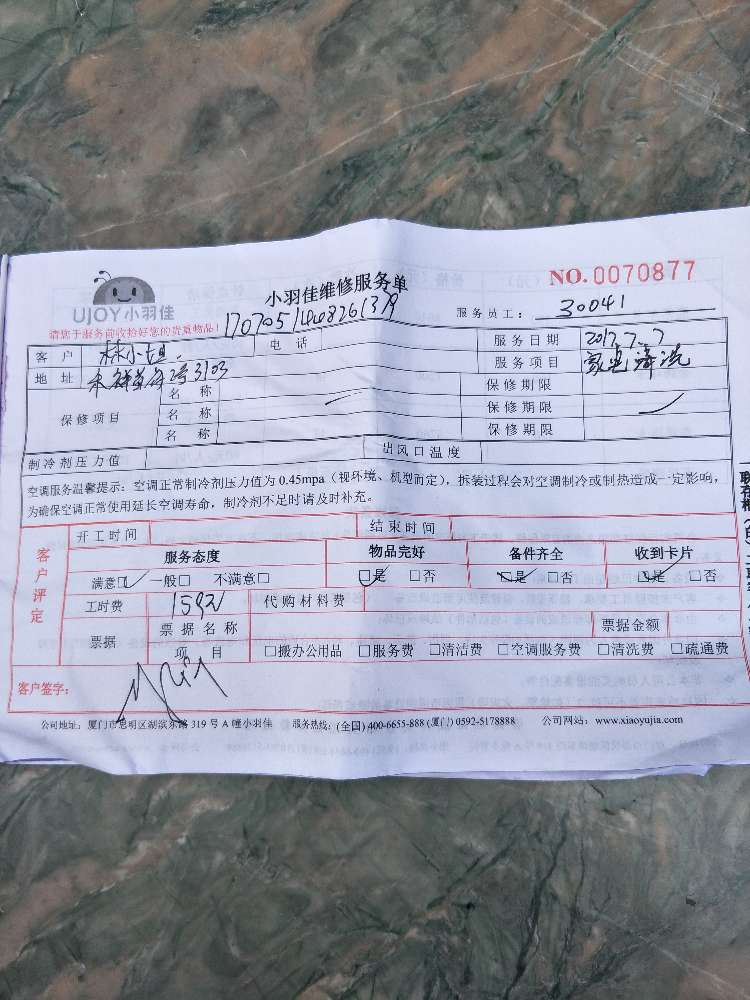 UJOY小羽佳
小羽佳维修服务单
NO.0070877
请您于服务前收拾好您的贵重物品!
服务员工: 30041
客户 林小姐 电话 服务日期 2017.7.7
地址 3103 服务项目 家电清洗
保修项目 名称 保修期限
名称 保修期限
名称 保修期限
制冷剂压力值 出风口温度
空调服务温馨提示:空调正常制冷剂压力值为0.45mpa(视环境、机型而定),拆装过程会对空调制冷或制热造成一定影响,
为确保空调正常使用延长空调寿命,制冷剂不足时请及时补充。
客户评定
开工时间 结束时间
服务态度 物品完好 备件齐全 收到卡片
满意□ 一般□ 不满意□ □是 □否 □是 □否 □是 □否
工时费 代购材料费
票据 票据名称 票据金额
项目 □搬办公用品 □服务费 □清洁费 □空调服务费 □清洗费 □疏通费
客户签字:
公司地址:厦门市思明区湖滨东路319号A幢小羽佳 服务热线:(全国)400-6655-888(厦门)0592-5178888 公司网站:www.xiaoyujia.com